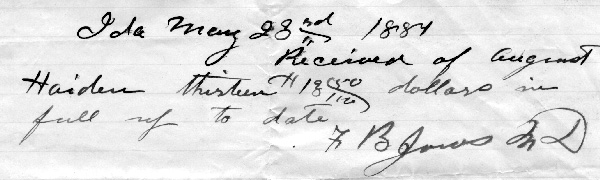 Ida May 23rd 1884
Received of August
Haiden thirteen 13 50/100 dollars in
full up to date
F B Jones M D